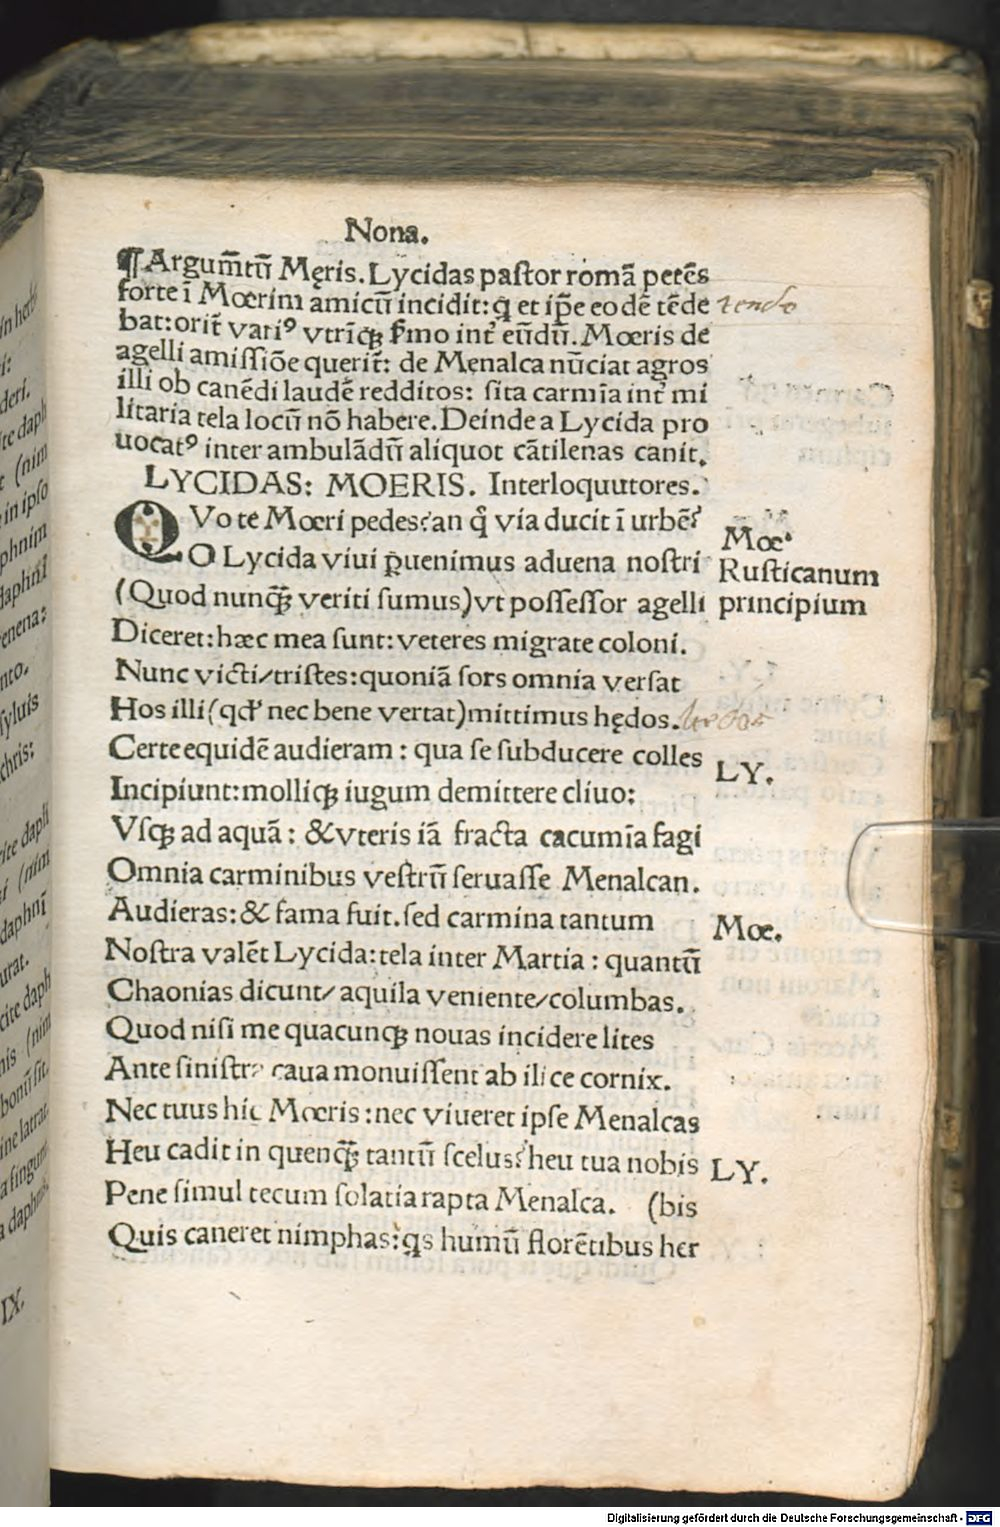 Nona.
¶ Argum̄tū Męris. Lycidas pastor romā petēs
forte ī Mœrim amicū incidit: q̄ et ip̄e eodē tēde tendo
bat: orit̄ variꝰ vtrīqꝫ ẜmo int̄ eūdū. Mœris de
agelli amissiōe querit̄: de Menalca nūciat agros
illi ob canēdi laudē redditos: sita carmīa int̄ mi
litaria tela locū nō habere. Deinde a Lycida pro
uocatꝰ inter ambulādū aliquot cātilenas canit.
LYCIDAS: MOERIS. Interloquutores.
QVo te Mœri pedes? an q̄ via ducit ī urbē?
O Lycida viui ꝑuenimus aduena nostri
(Quod nunqꝫ̄ veriti sumus) vt possessor agelli
Diceret: hæc mea sunt: veteres migrate coloni.
Nunc victi/ tristes: quoniā sors omnia versat
Hos illi (qd̛ nec bene vertat) mittimus hędos.
Certe equidē audieram: qua se subducere colles
Incipiunt: molliqꝫ iugum demittere cliuo:
Vsqꝫ ad aquā: & vteris iā fracta cacumīa fagi
Omnia carminibus vestrū seruasse Menalcan.
Audieras: & fama fuit. sed carmina tantum
Nostra valēt Lycida: tela inter Martia: quantū
Chaonias dicunt/ aquila veniente/ columbas.
Quod nisi me quacunqꝫ nouas incidere lites
Ante sinistra caua monuissent ab ilice cornix.
Nec tuus hic Mœris: nec viueret ipse Menalcas
Heu cadit in quenqꝫ̄ tantū scelus? heu tua nobis
Pene simul tecum solatia rapta Menalca. (bis
Quis caneret nimphas: qs humū florētibus her
Mœ.
Rusticanum
principium
LY.
Mœ.
LY.
Digitalisierung gefördert durch die Deutsche Forschungsgemeinschaft - DFG